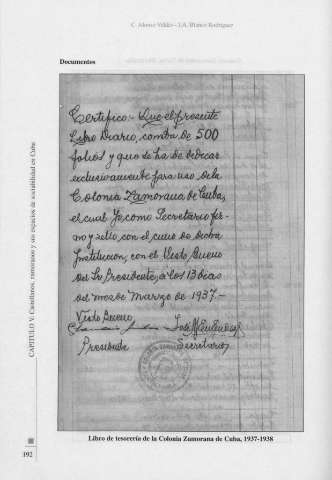 C. Alonso Valdés – J.A. Blanco Rodríguez
Documentos
Certifico:- Que el presente
Libro Diario, consta de 500
folios y que se ha de dedicar
exclusivamente para uso de la
Colonia Zamorana de Cuba,
el cual Yo, como Secretario fir-
mo y sello, con el cuño de dicha
Institucion, con el Visto Bueno
del Sr. Presidente, a los 13 dias
del mes de Marzo de 1937.-
Visto Bueno,
Presidente
Secretario
Libro de tesorería de la Colonia Zamorana de Cuba, 1937-1938
CAPITULO V: Castellanos, zamoranos y sus espacios de sociabilidad en Cuba
192